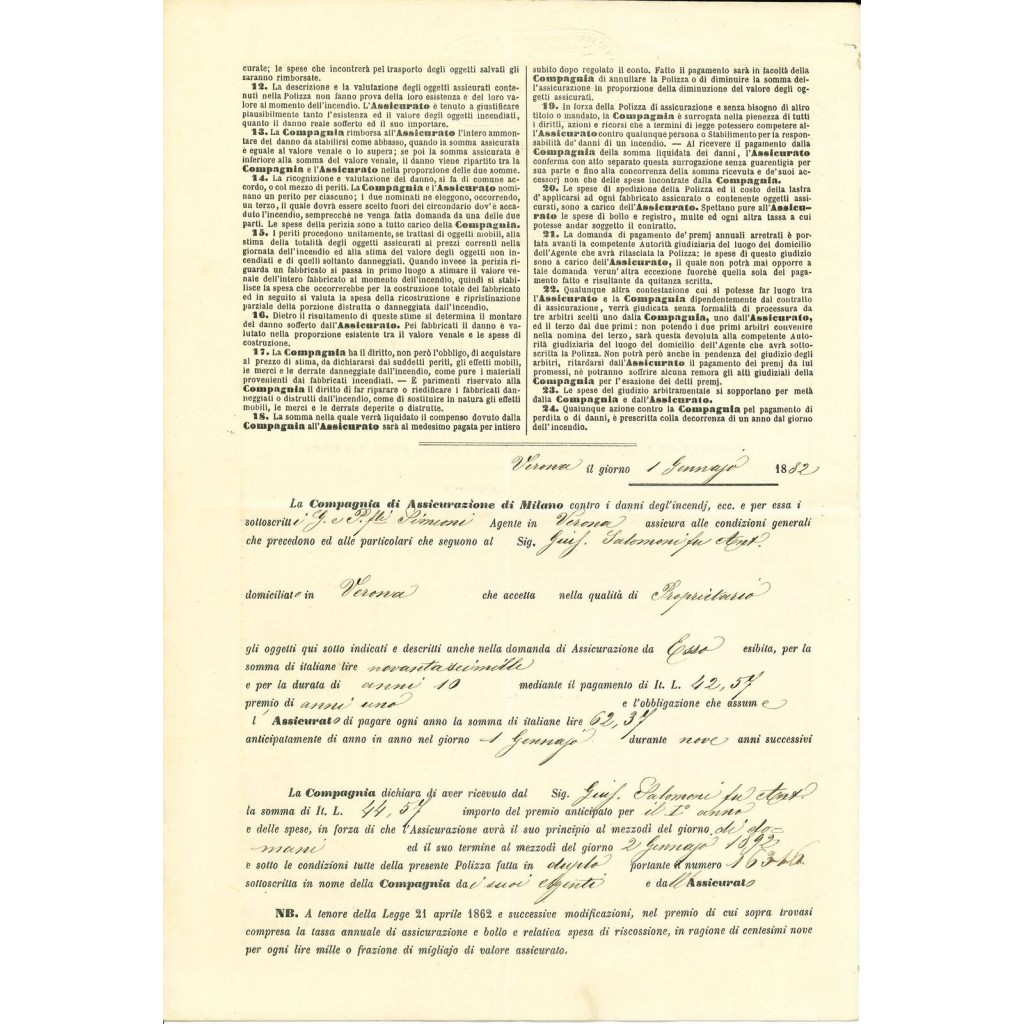 curate; le spese che incontrerà pel trasporto degli oggetti salvati gli
saranno rimborsate.
12. La descrizione e la valutazione degli oggetti assicurati conte-
nuti nella Polizza non fanno prova della loro esistenza e del loro va-
lore al momento dell'incendio. L'Assicurato è tenuto a giustificare
plausibilmente tanto l'esistenza ed il valore degli oggetti incendiati,
quanto il danno reale sofferto ed il suo importare.
13. La Compagnia rimborsa all'Assicurato l'intero ammon-
tare del danno da stabilirsi come abbasso, quando la somma assicurata
è eguale al valore venale o lo supera; se poi la somma assicurata è
inferiore alla somma del valore venale, il danno viene ripartito tra la
Compagnia e l'Assicurato nella proporzione delle due somme.
14. La ricognizione e valutazione del danno, si fa di comune ac-
cordo, o col mezzo di periti. La Compagnia e l'Assicurato nomi-
nano un perito per ciascuno; i due nominati ne eleggono, occorrendo,
un terzo, il quale dovrà essere scelto fuori del circondario dov' è acca-
duto l'incendio, sempreché ne venga fatta domanda da una delle due
parti. Le spese della perizia sono a tutto carico della Compagnia.
15. I periti procedono unitamente, se trattasi di oggetti mobili, alla
stima della totalità degli oggetti assicurati ai prezzi correnti nella
giornata dell'incendio ed alla stima del valore degli oggetti non in-
cendiati e di quelli soltanto danneggiati. Quando invece la perizia ri-
guarda un fabbricato si passa in primo luogo a stimare il valore ve-
nale dell'intero fabbricato al momento dell'incendio, quindi si stabi-
lisce la spesa che occorrerebbe per la costruzione totale del fabbricato
ed in seguito si valuta la spesa della ricostruzione e ripristinazione
parziale della porzione distrutta o danneggiata dall'incendio.
16. Dietro il risultamento di queste stime si determina il montare
del danno sofferto dall'Assicurato. Pei fabbricati il danno è va-
lutato nella proporzione esistente tra il valore venale e le spese di
costruzione.
17. La Compagnia ha il diritto, non però l'obbligo, di acquistare
al prezzo di stima, da dichiararsi dai suddetti periti, gli effetti mobili,
le merci e le derrate danneggiate dall'incendio, come pure i materiali
provenienti dai fabbricati incendiati. — È parimenti riservato alla
Compagnia il diritto di far riparare o riedificare i fabbricati dan-
neggiati o distrutti dall'incendio, come di sostituire in natura gli effetti
mobili, le merci e le derrate deperite o distrutte.
18. La somma nella quale verrà liquidato il compenso dovuto dalla
Compagnia all'Assicurato sarà al medesimo pagata per intiero
subito dopo regolato il conto. Fatto il pagamento sarà in facoltà della
Compagnia di annullare la Polizza o di diminuire la somma del-
l'assicurazione in proporzione della diminuzione del valore degli og-
getti assicurati.
19. In forza della Polizza di assicurazione e senza bisogno di altro
titolo o mandato, la Compagnia è surrogata nella pienezza di tutti
i diritti, azioni e ricorsi che a termini di legge potessero competere al-
l'Assicurato contro qualunque persona o Stabilimento per la respon-
sabilità de' danni di un incendio. — Al ricevere il pagamento dalla
Compagnia della somma liquidata dei danni, l'Assicurato
conferma con atto separato questa surrogazione senza guarentigia per
sua parte e fino alla concorrenza della somma ricevuta e de' suoi ac-
cessorj non che delle spese incontrate dalla Compagnia.
20. Le spese di spedizione della Polizza ed il costo della lastra
d'applicarsi ad ogni fabbricato assicurato o contenente oggetti assi-
curati, sono a carico dell'Assicurato. Spettano pure all'Assicu-
rato le spese di bollo e registro, multe ed ogni altra tassa a cui
potesse andar soggetto il contratto.
21. La domanda di pagamento de' premj annuali arretrati è por-
tata avanti la competente Autorità giudiziaria del luogo del domicilio
dell'Agente che avrà rilasciata la Polizza; le spese di questo giudizio
sono a carico dell'Assicurato, il quale non potrà mai opporre a
tale domanda verun' altra eccezione fuorchè quella sola del paga-
mento fatto e risultante da quitanza scritta.
22. Qualunque altra contestazione cui si potesse far luogo tra
l'Assicurato e la Compagnia dipendentemente dal contratto
di assicurazione, verrà giudicata senza formalità di processura da
tre arbitri scelti uno dalla Compagnia, uno dall'Assicurato,
ed il terzo dai due primi: non potendo i due primi arbitri convenire
nella nomina del terzo, sarà questa devoluta alla competente Auto-
rità giudiziaria del luogo del domicilio dell'Agente che avrà sotto-
scritta la Polizza. Non potrà però anche in pendenza del giudizio degli
arbitri, ritardarsi dall'Assicurato il pagamento dei premj da lui
promessi, nè potranno soffrire alcuna remora gli atti giudiziali della
Compagnia per l'esazione dei detti premj.
23. Le spese del giudizio arbitramentale si sopportano per metà
dalla Compagnia e dall'Assicurato.
24. Qualunque azione contro la Compagnia pel pagamento di
perdita o di danni, è prescritta colla decorrenza di un anno dal giorno
dell'incendio.
Verona il giorno 1 Gennajo 1882
La Compagnia di Assicurazione di Milano contro i danni degl'incendj, ecc. e per essa i
sottoscritti G. e P. flli Simeoni Agente in Verona assicura alle condizioni generali
che precedono ed alle particolari che seguono al Sig. Gius. Salomoni fu Ant.
domiciliato in Verona che accetta nella qualità di Proprietario
gli oggetti qui sotto indicati e descritti anche nella domanda di Assicurazione da Esso esibita, per la
somma di italiane lire novantaseimille
e per la durata di anni 10 mediante il pagamento di It. L. 42,57
premio di anni uno e l'obbligazione che assume
l' Assicurato di pagare ogni anno la somma di italiane lire 62,37
anticipatamente di anno in anno nel giorno 1 Gennajo durante nove anni successivi
La Compagnia dichiara di aver ricevuto dal Sig. Gius. Salomoni fu Ant.
la somma di It. L. 44,57 importo del premio anticipato per il 1° anno
e delle spese, in forza di che l'Assicurazione avrà il suo principio al mezzodì del giorno di do-
mani ed il suo termine al mezzodì del giorno 2 Gennajo 1892
e sotto le condizioni tutte della presente Polizza fatta in duplo portante il numero
sottoscritta in nome della Compagnia da i suoi Agenti e dall' Assicurato
NB. A tenore della Legge 21 aprile 1862 e successive modificazioni, nel premio di cui sopra trovasi
compresa la tassa annuale di assicurazione e bollo e relativa spesa di riscossione, in ragione di centesimi nove
per ogni lire mille o frazione di migliajo di valore assicurato.